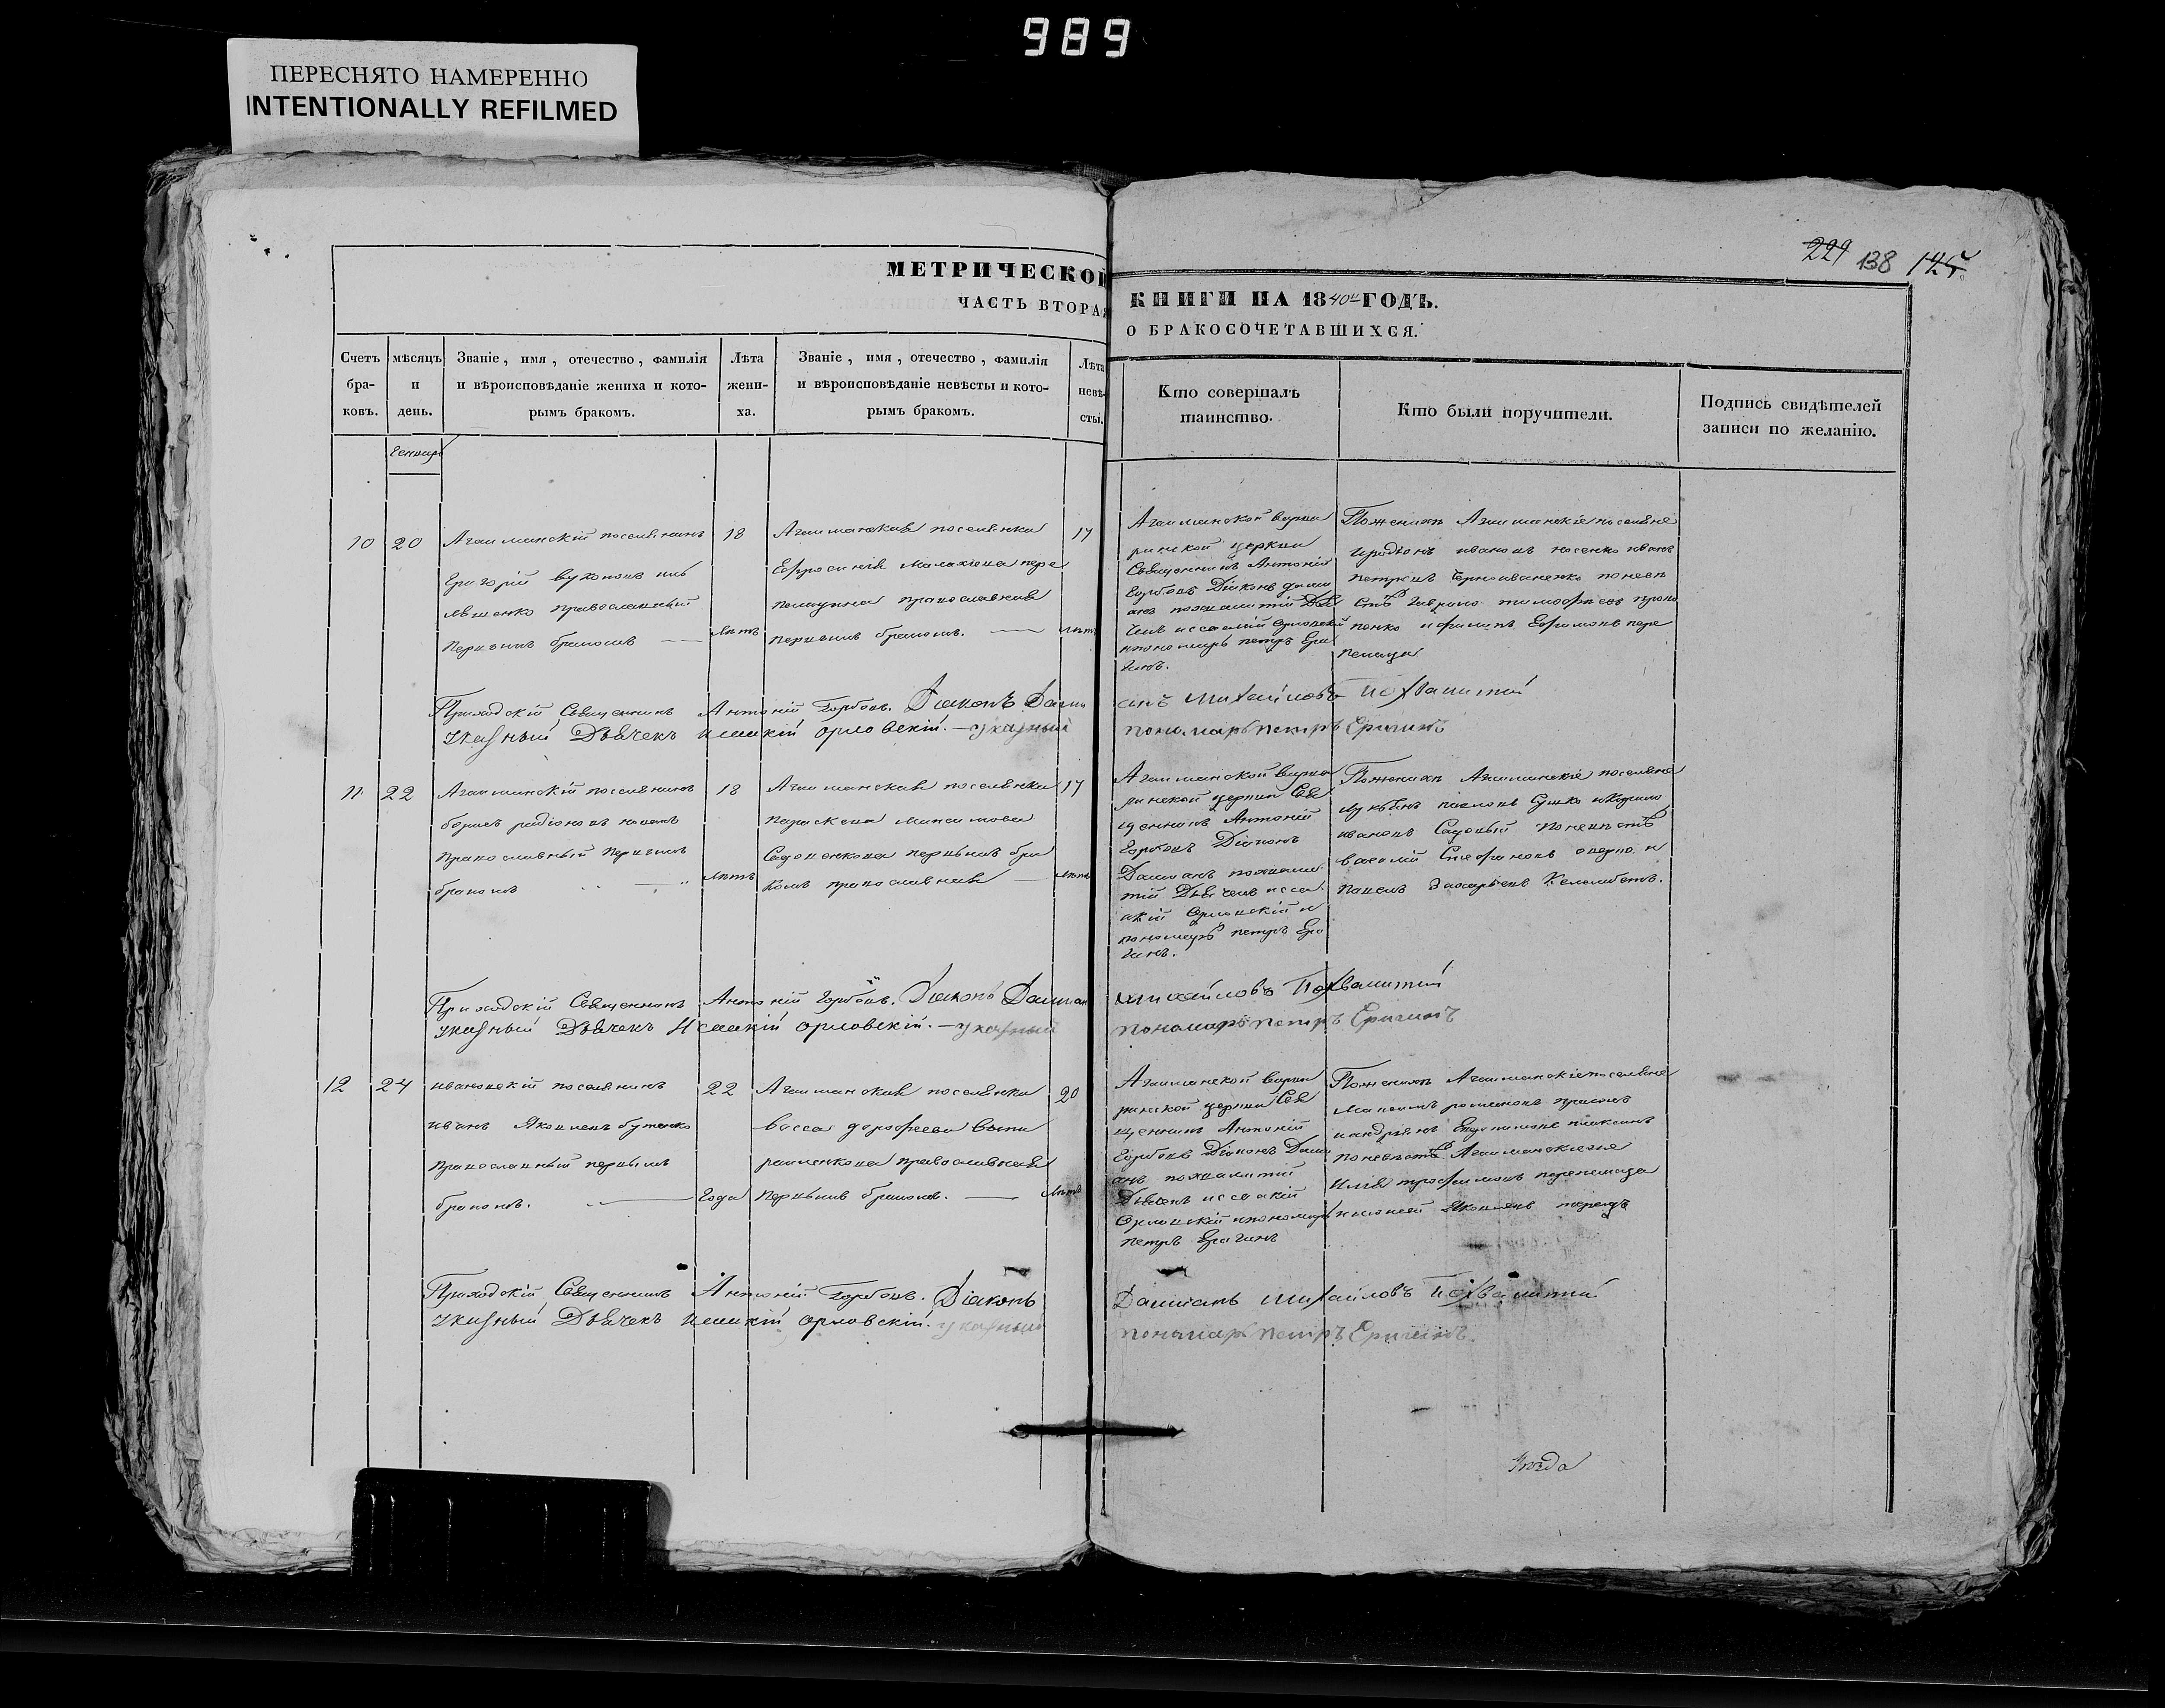 989
ПЕРЕСНЯТО НАМЕРЕННО
INTENTIONALLY REFILMED
229 138 125
МЕТРИЧЕСКОЙ
ЧАСТЬ ВТОРАЯ
КНИГИ НА 1840й ГОДЪ.
О БРАКОСОЧЕТАВШИХСЯ.
Счетъ бра-ковъ.
мѣсяцъ и день.
Званіе, имя, отечество, фамилія
и вѣроисповѣданіе жениха и кото-
рымъ бракомъ.
Лѣта жени-ха.
Званіе, имя, отечество, фамилія
и вѣроисповѣданіе невѣсты и кото-
рымъ бракомъ.
Лѣта невѣ-сты.
Кто совершалъ
таинство.
Кто были поручители.
Подпись свидѣтелей
записи по желанію.
Генваря
10
20
Агаиманскій поселянинъ
Григорій
православный
первымъ бракомъ
18
лѣтъ
Агаиманская поселянка
Ефросинія Малахіева пере
пелицына православная
первымъ бракомъ.
17
лѣтъ
Агаиманской варва
ринской церкви
Священникъ Антоній
Горбовъ Діаконъ дами
анъ похвалитій Дья
чекъ иссакій орловскій
ипономарь петръ Ера
гинъ.
По женихѣ Агаиманскіе поселяне
иродіонъ ивановъ носенко иванъ
петровъ Черноиваненко по невѣ
стѣ гаврило тимофѣевъ проко
пенко ифилипъ Ефимовъ пере
пелица
Приходскій Священникъ Антоній Горбовъ. Діаконъ Даміанъ Михайловъ Похвалитій
указный Дьячекъ Исакій орловскій. — указный пономарь петръ Ерагинъ
11
22
Агаиманскій поселянинъ
борисъ радіоновъ
православный первымъ
бракомъ
18
лѣтъ
Агаиманская поселянка
параскева Максимова
Садовенкова первымъ бра
комъ православная
17
лѣтъ
Агаиманской варва
ринской церкви Свя
щенникъ Антоній
Горбовъ Діаконъ
Даміанъ похвали
тій Дьячекъ исса
акій Орловскій и
пономарь петръ Ера
гинъ.
По женихѣ Агаиманскіе поселяне
лукьянъ павловъ Сушко
ивановъ Садовый по невѣстѣ
василій Стефановъ и
павелъ Захарьевъ Келембетъ.
Приходскій Священникъ Антоній Горбовъ. Діаконъ Даміан Михайловъ Похвалитій
указный Дьячекъ Исакій орловскій. — указный пономарь петръ Ерагинъ
12
24
ивановскій поселянинъ
иванъ Яковлевъ бутенко
православный первымъ
бракомъ.
22
Года
Агаиманская поселянка
васса дорофеева
православная
первымъ бракомъ.
20
лѣтъ
Агаиманской варва
ринской церкви Свя
щенникъ Антоній
Горбовъ Діаконъ Дами
анъ похвалитій
Дьячекъ иссакій
Орловскій ипономарь
петръ Ерагинъ
По женихѣ Агаиманскіе поселяне
романовъ
по невѣстѣ Агаиманскіе
Илья трофимовъ перепелица
Яковлевъ
Приходскій Священникъ Антоній Горбовъ. Діаконъ Даміанъ Михайловъ Похвалитій
указный Дьячекъ Исакій орловскій. указный пономарь петръ Ерагинъ